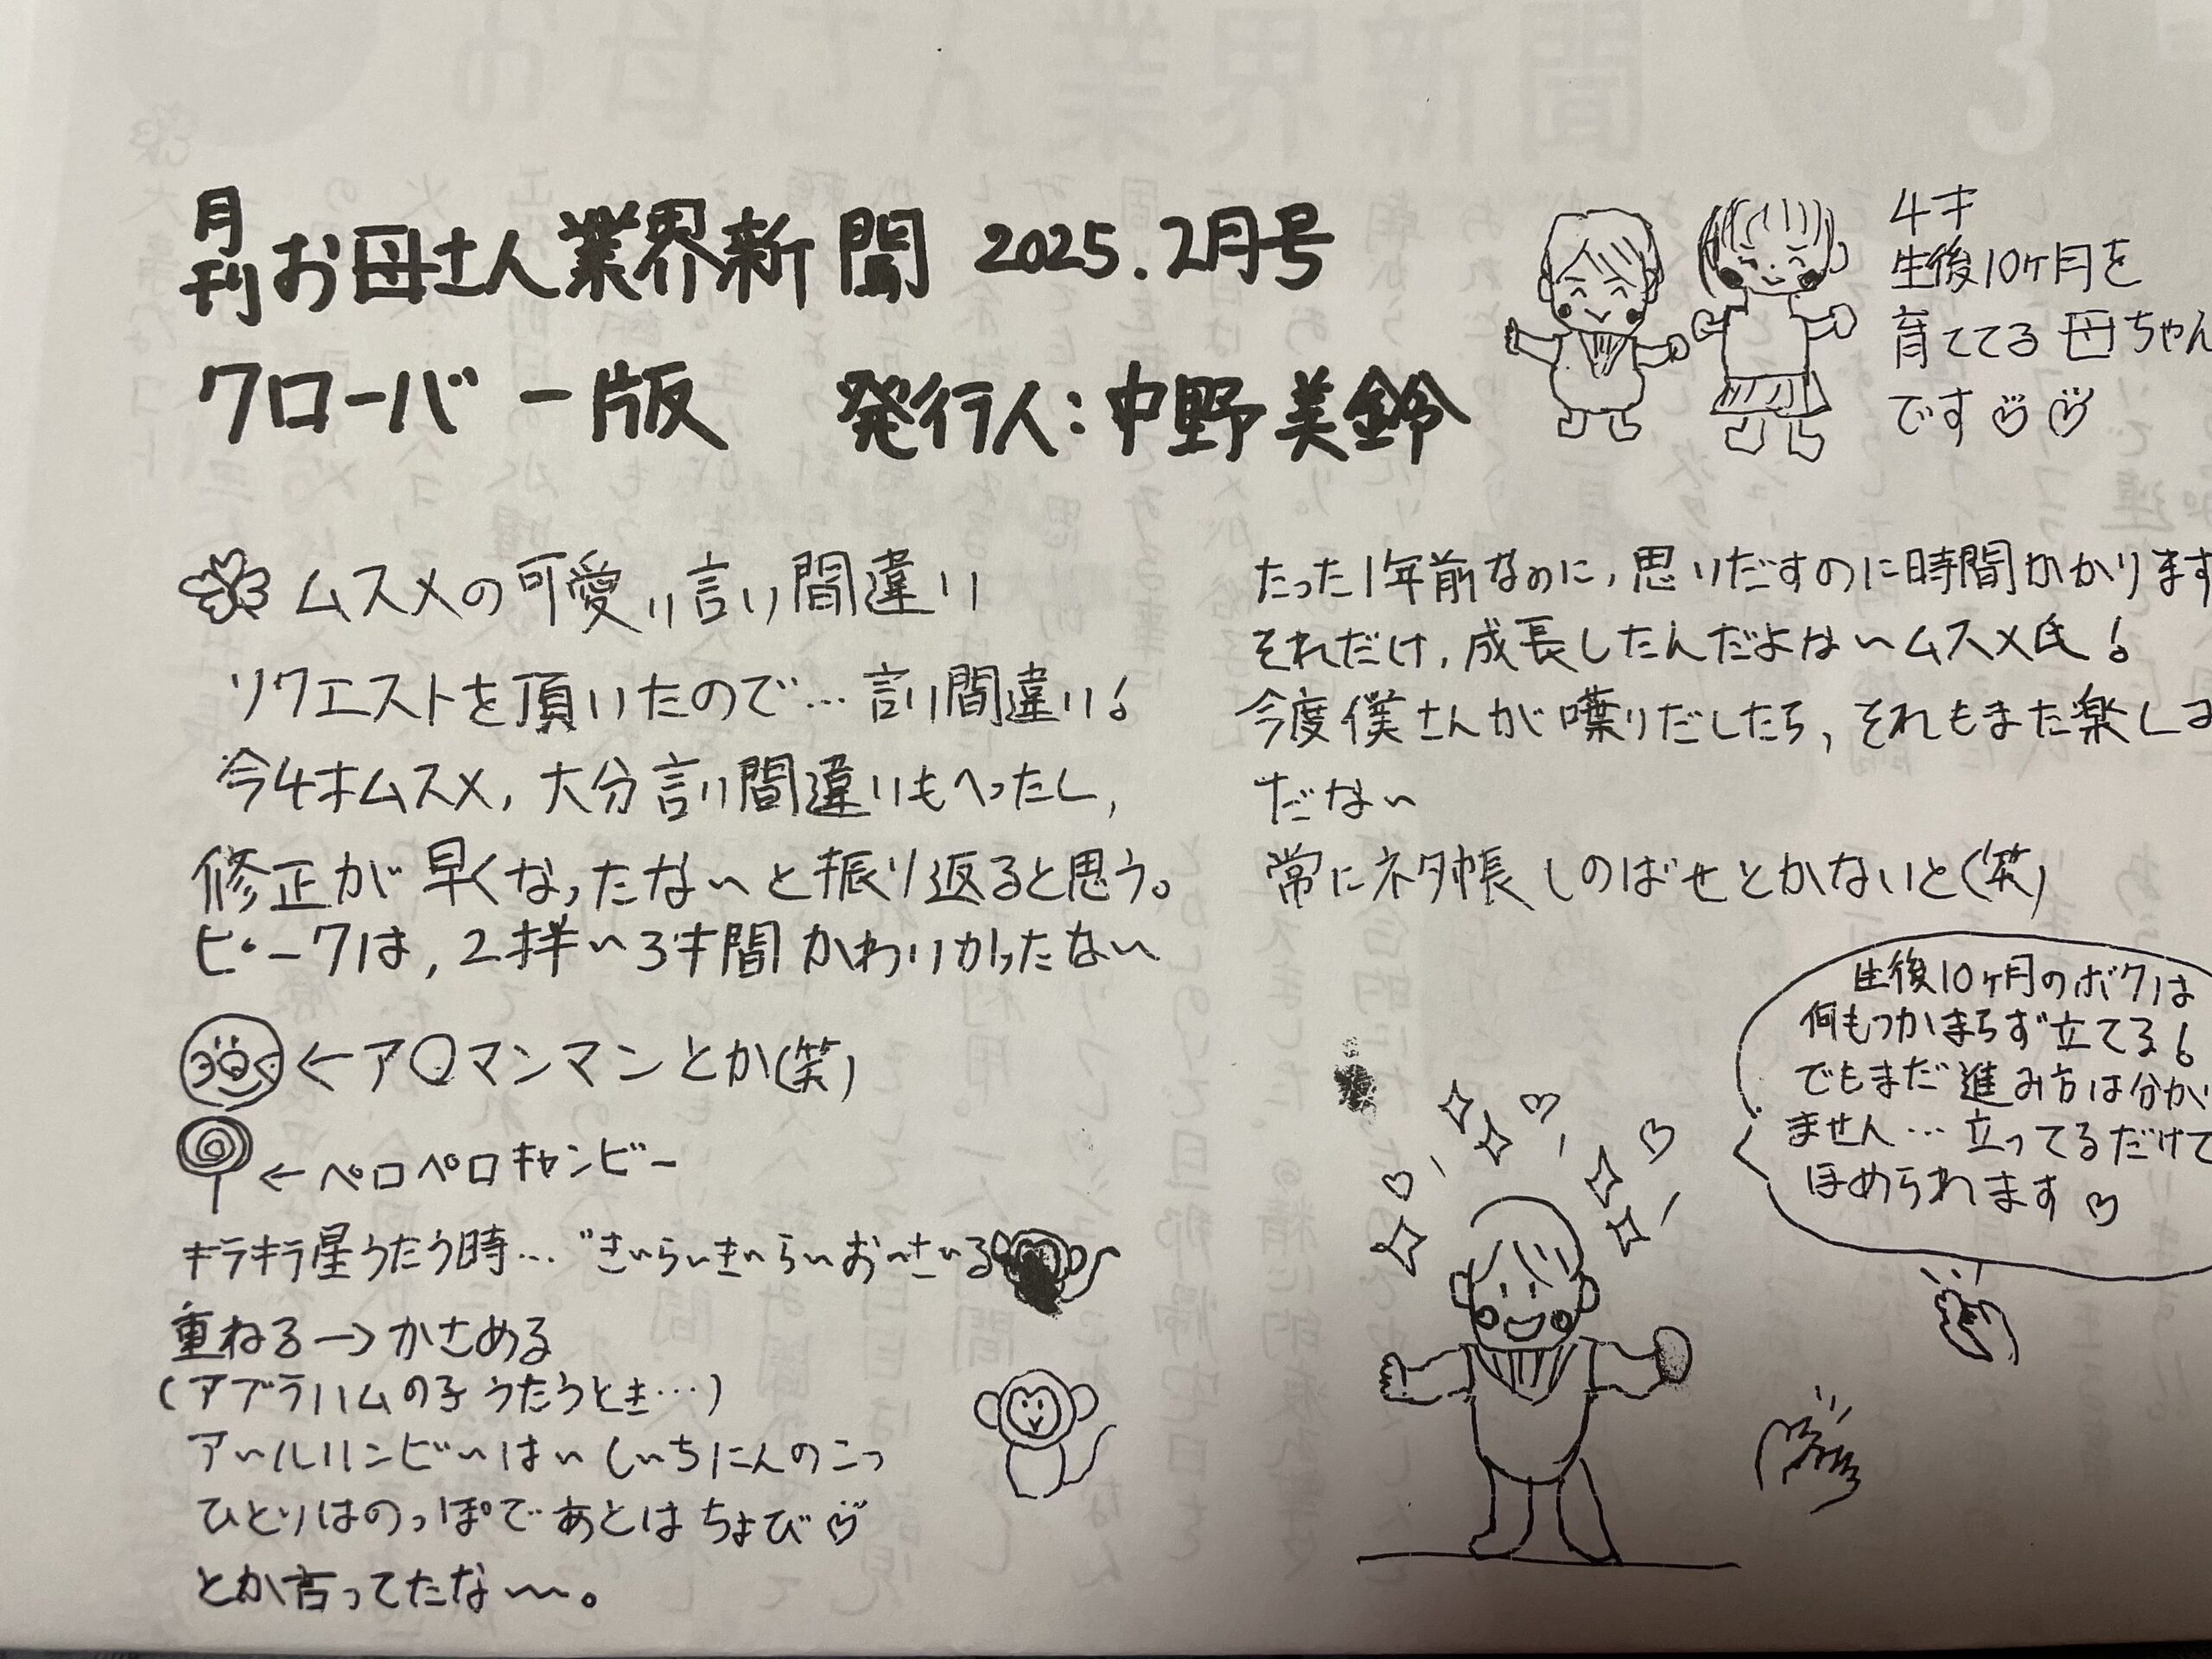 月刊 お母さん業界新聞 2025.2月号
クローバー版 発行人:中野美鈴
4才
生後10ヶ月を
育ててる母ちゃん
です♡♡
ムスメの可愛い言い間違い
リクエストを頂いたので…言い間違い!
今4才ムスメ、大分言い間違いもへったし、
修正が早くなったな〜と振り返ると思う。
ピークは、2才〜3才間かわいかったな〜
←ア〇マンマンとか(笑)
←ペロペロキャンビー
キラキラ星うたう時…"き〜ら〜き〜ら〜お〜さ〜る
重ねる→かさめる
(アブラハムの子うたうとき…)
ア〜ルハンビ〜は〜し〜ちにんのこっ
ひとりはのっぽであとはちょび♡
とか言ってたな〜〜。
たった1年前なのに、思いだすのに時間かかります
それだけ、成長したんだよな〜ムスメ氏!
今度僕さんが喋りだしたら、それもまた楽しみ
だな〜
常にネタ帳しのばせとかないと(笑)
生後10ヶ月のボクは
何もつかまらず立てる!
でもまだ進み方は分かり
ません…立ってるだけで
ほめられます♡